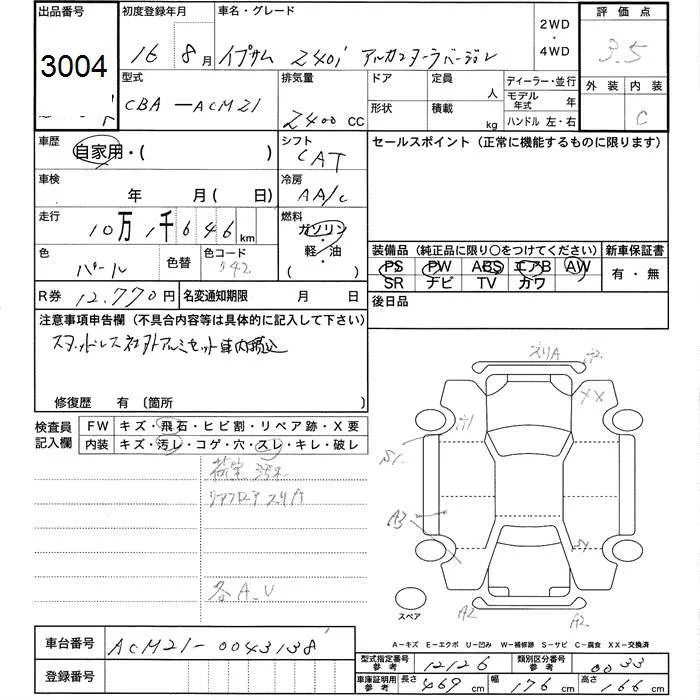 出品番号 初度登録年月 車名・グレード 2WD ・ 4WD 評価点
3004 16 8月 イプサム 240i アルカンターラバージョン 3.5
型式 排気量 ドア 定員 人 ディーラー・並行 外装 内装
CBA-ACM21 2400 CC 形状 積載 kg モデル年式 年 C
ハンドル 左・右
車歴 自家用・( ) シフト CAT セールスポイント(正常に機能するものに限ります)
車検 年 月( 日) 冷房 AA/C
走行 10万1千646km 燃料 ガソリン・軽・油 ( )
色 パール 色替 色コード 042 装備品(純正品に限り○をつけてください) 新車保証書
PS PW ABS エアB AW 有・無
SR ナビ TV カワ
R券 12,770円 名変通知期限 月 日 後日品
注意事項申告欄(不具合内容等は具体的に記入して下さい)
スタッドレス社外アルミセット車内積込
修復歴 有(箇所
検査員記入欄 FW キズ・飛石・ヒビ割・リペア跡・X要
内装 キズ・汚レ・コゲ・穴・スレ・キレ・破レ
荷室汚れ
リアフロア スリキズ
各A、U
スリA
XX
S1
A3
A2 A2
スペア
A-キズ E-エクボ U-凹み W-補修跡 S-サビ C-腐食 XX-交換済
車台番号 ACM21-0043138
登録番号
型式指定番号参考 12126 類別区分番号参考 0033
車庫証明用参考 長さ 469cm 幅 176cm 高さ 166cm